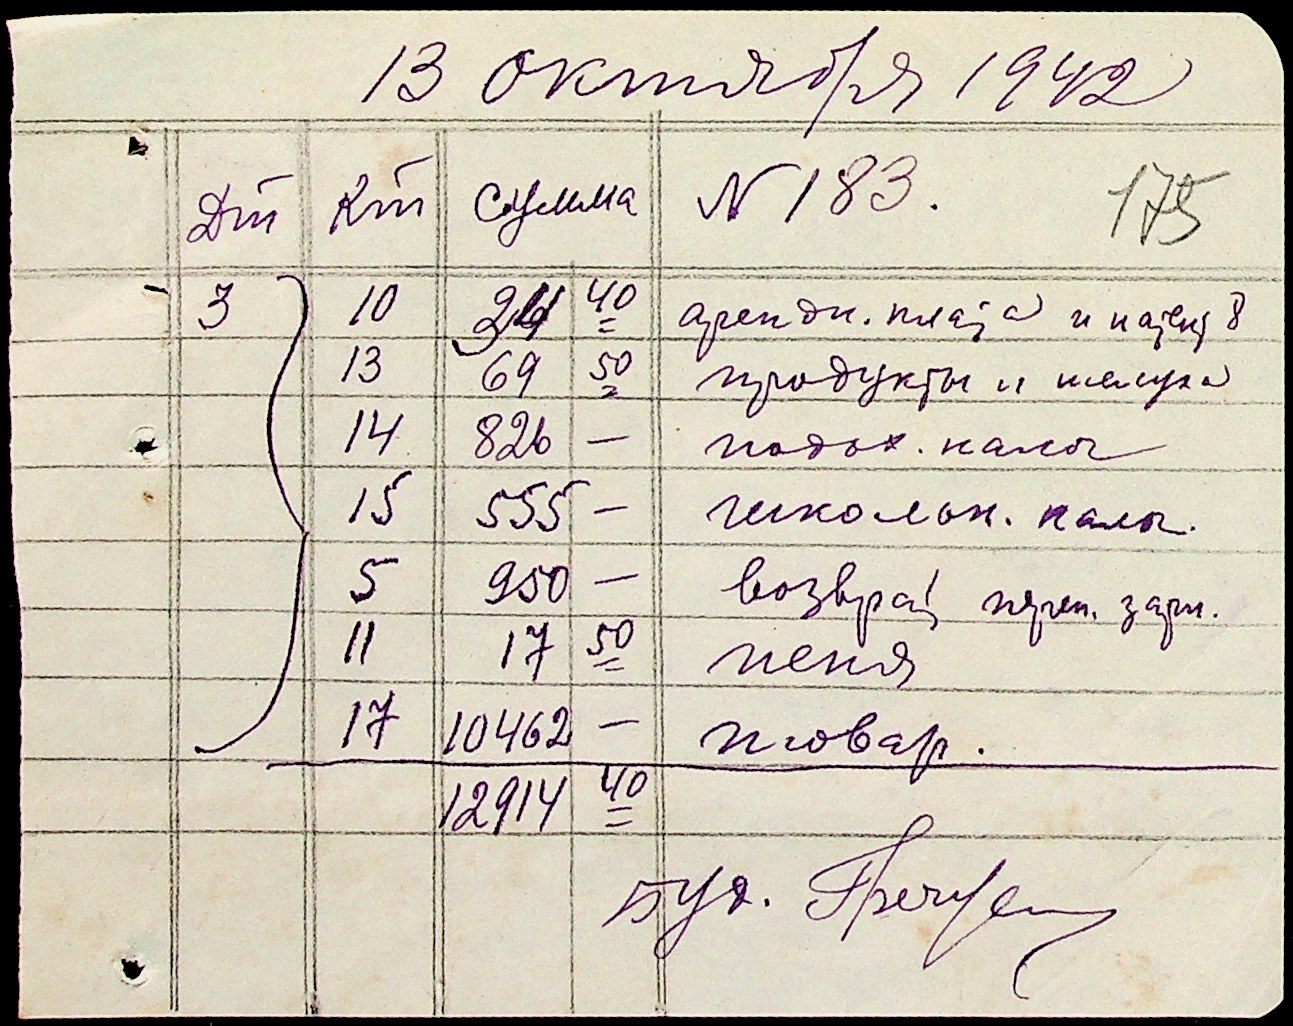 13 октября 1942
Дт Кт сумма N 183. 175
3 10 34 40 арендн. плата и патент
13 69 50 продукты и шелуха
14 826 — подох. налог
15 555 — школьн. налог.
5 950 — возврат зарп.
11 17 50 пеня
17 10462 — товар.
12914 40
Бух.